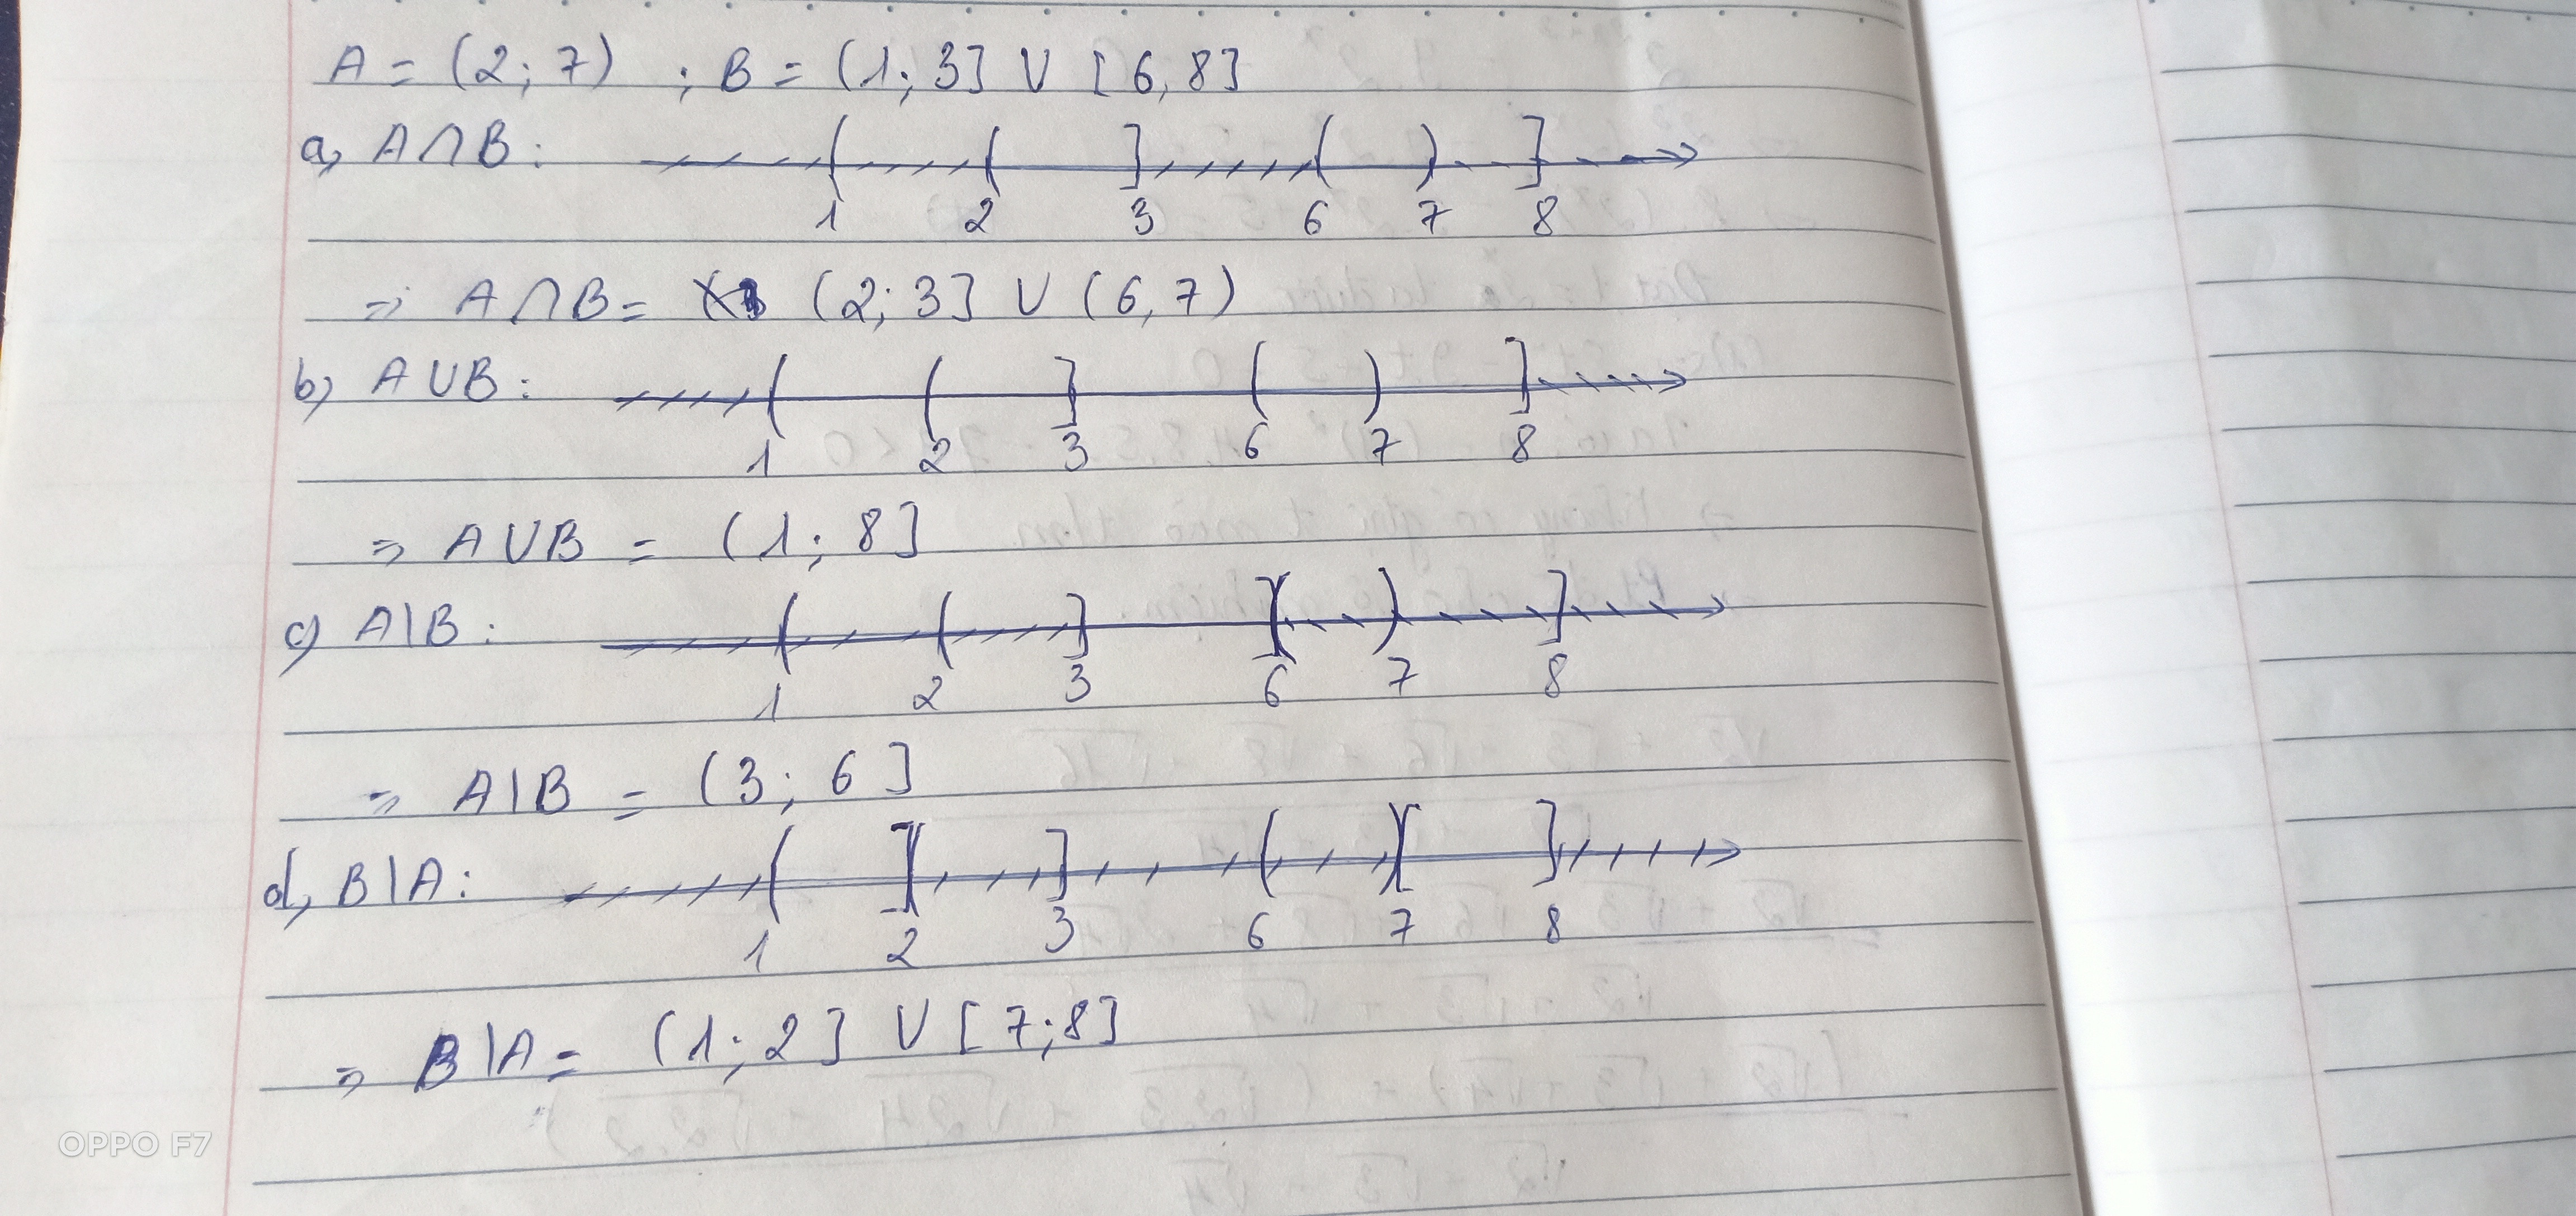 A = (2; 7) ; B = (1; 3] ∪ [6, 8]
a, A∩B:
1 2 3 6 7 8
=> A∩B = (2; 3] ∪ (6, 7)
b) A∪B:
1 2 3 6 7 8
=> A∪B = (1; 8]
c) A\B:
1 2 3 6 7 8
=> A\B = (3; 6]
d, B\A:
1 2 3 6 7 8
=> B\A = (1; 2] ∪ [7; 8]
OPPO F7